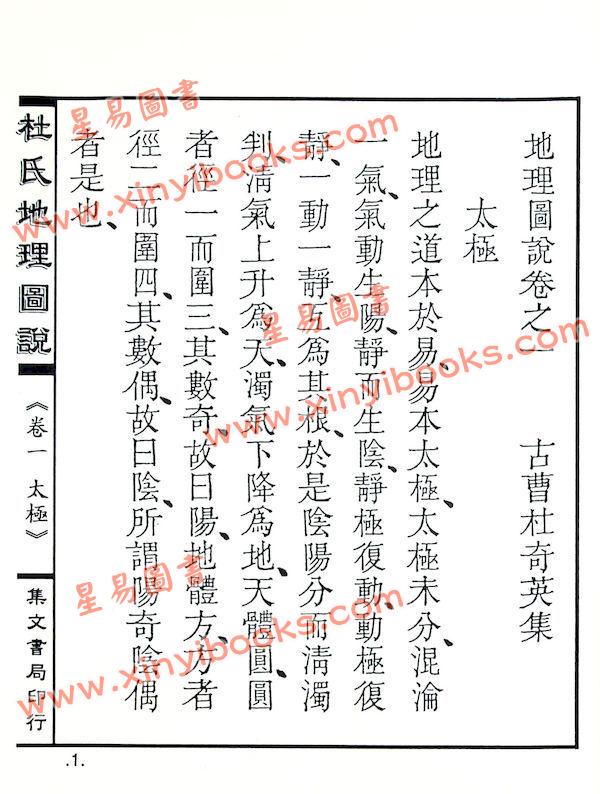 地理圖說卷之一　古曹杜奇英集
太極
地理之道本於易、易本太極、太極未分、混淪
一氣、氣動生陽、靜而生陰、靜極復動、動極復
靜、一動一靜、互為其根、於是陰陽分而清濁
判、清氣上升為天、濁氣下降為地、天體圓、圓
者徑一而圍三、其數奇、故曰陽、地體方、方者
徑二而圍四、其數偶、故曰陰、所謂陽奇陰偶
者是也、
杜氏地理圖說
《卷一 太極》
集文書局印行
.1.
星易圖書
www.xinyibooks.com
星易圖書
www.xinyibooks.com
星易圖書
www.xinyibooks.com